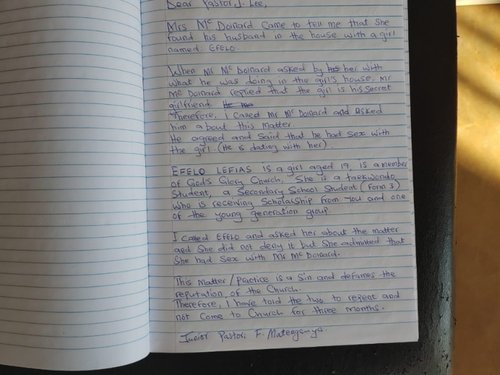 Dear Pastor J. Lee,
Mrs Mc Donard came to tell me that she
found his husband in the house with a girl
named EFELO
When Mr Mc Donard asked by her with
what he was doing in the girl's house, Mr
Mc Donard replied that the girl is his secret
girlfriend.
Therefore, I called Mr Mc Donard and asked
him about this matter
He agreed and said that he had sex with
the girl. (He is dating with her)
EFELO LEFIAS is a girl aged 19, is a member
of God's Glory Church. She is a taekwondo
Student, a Secondary School Student (Form 3)
Who is receiving Scholarship from you and one
of the young generation group
I called EFELO and asked her about the matter
and She did not deny it but She admitted that
She had Sex with Mr Mc Donard.
This Matter/practice is a Sin and defames the
reputation of the Church.
Therefore, I have told the two to repent and
not come to Church for three months.
Junior Pastor, F.